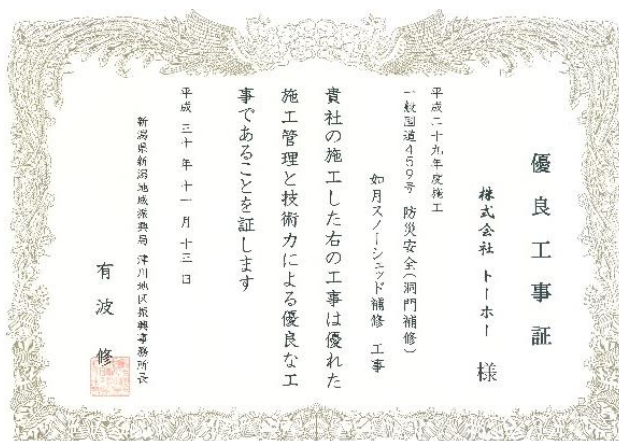 優良工事証
株式会社 トーホー 様
平成二十九年度施工
一般国道459号 防災安全(洞門補修)
如月スノーシェッド補修 工事
貴社の施工した右の工事は優れた
施工管理と技術力による優良な工
事であることを証します
平成 三十 年 十一 月 十三 日
新潟県新潟地域振興局 津川地区振興事務所長
有波 修